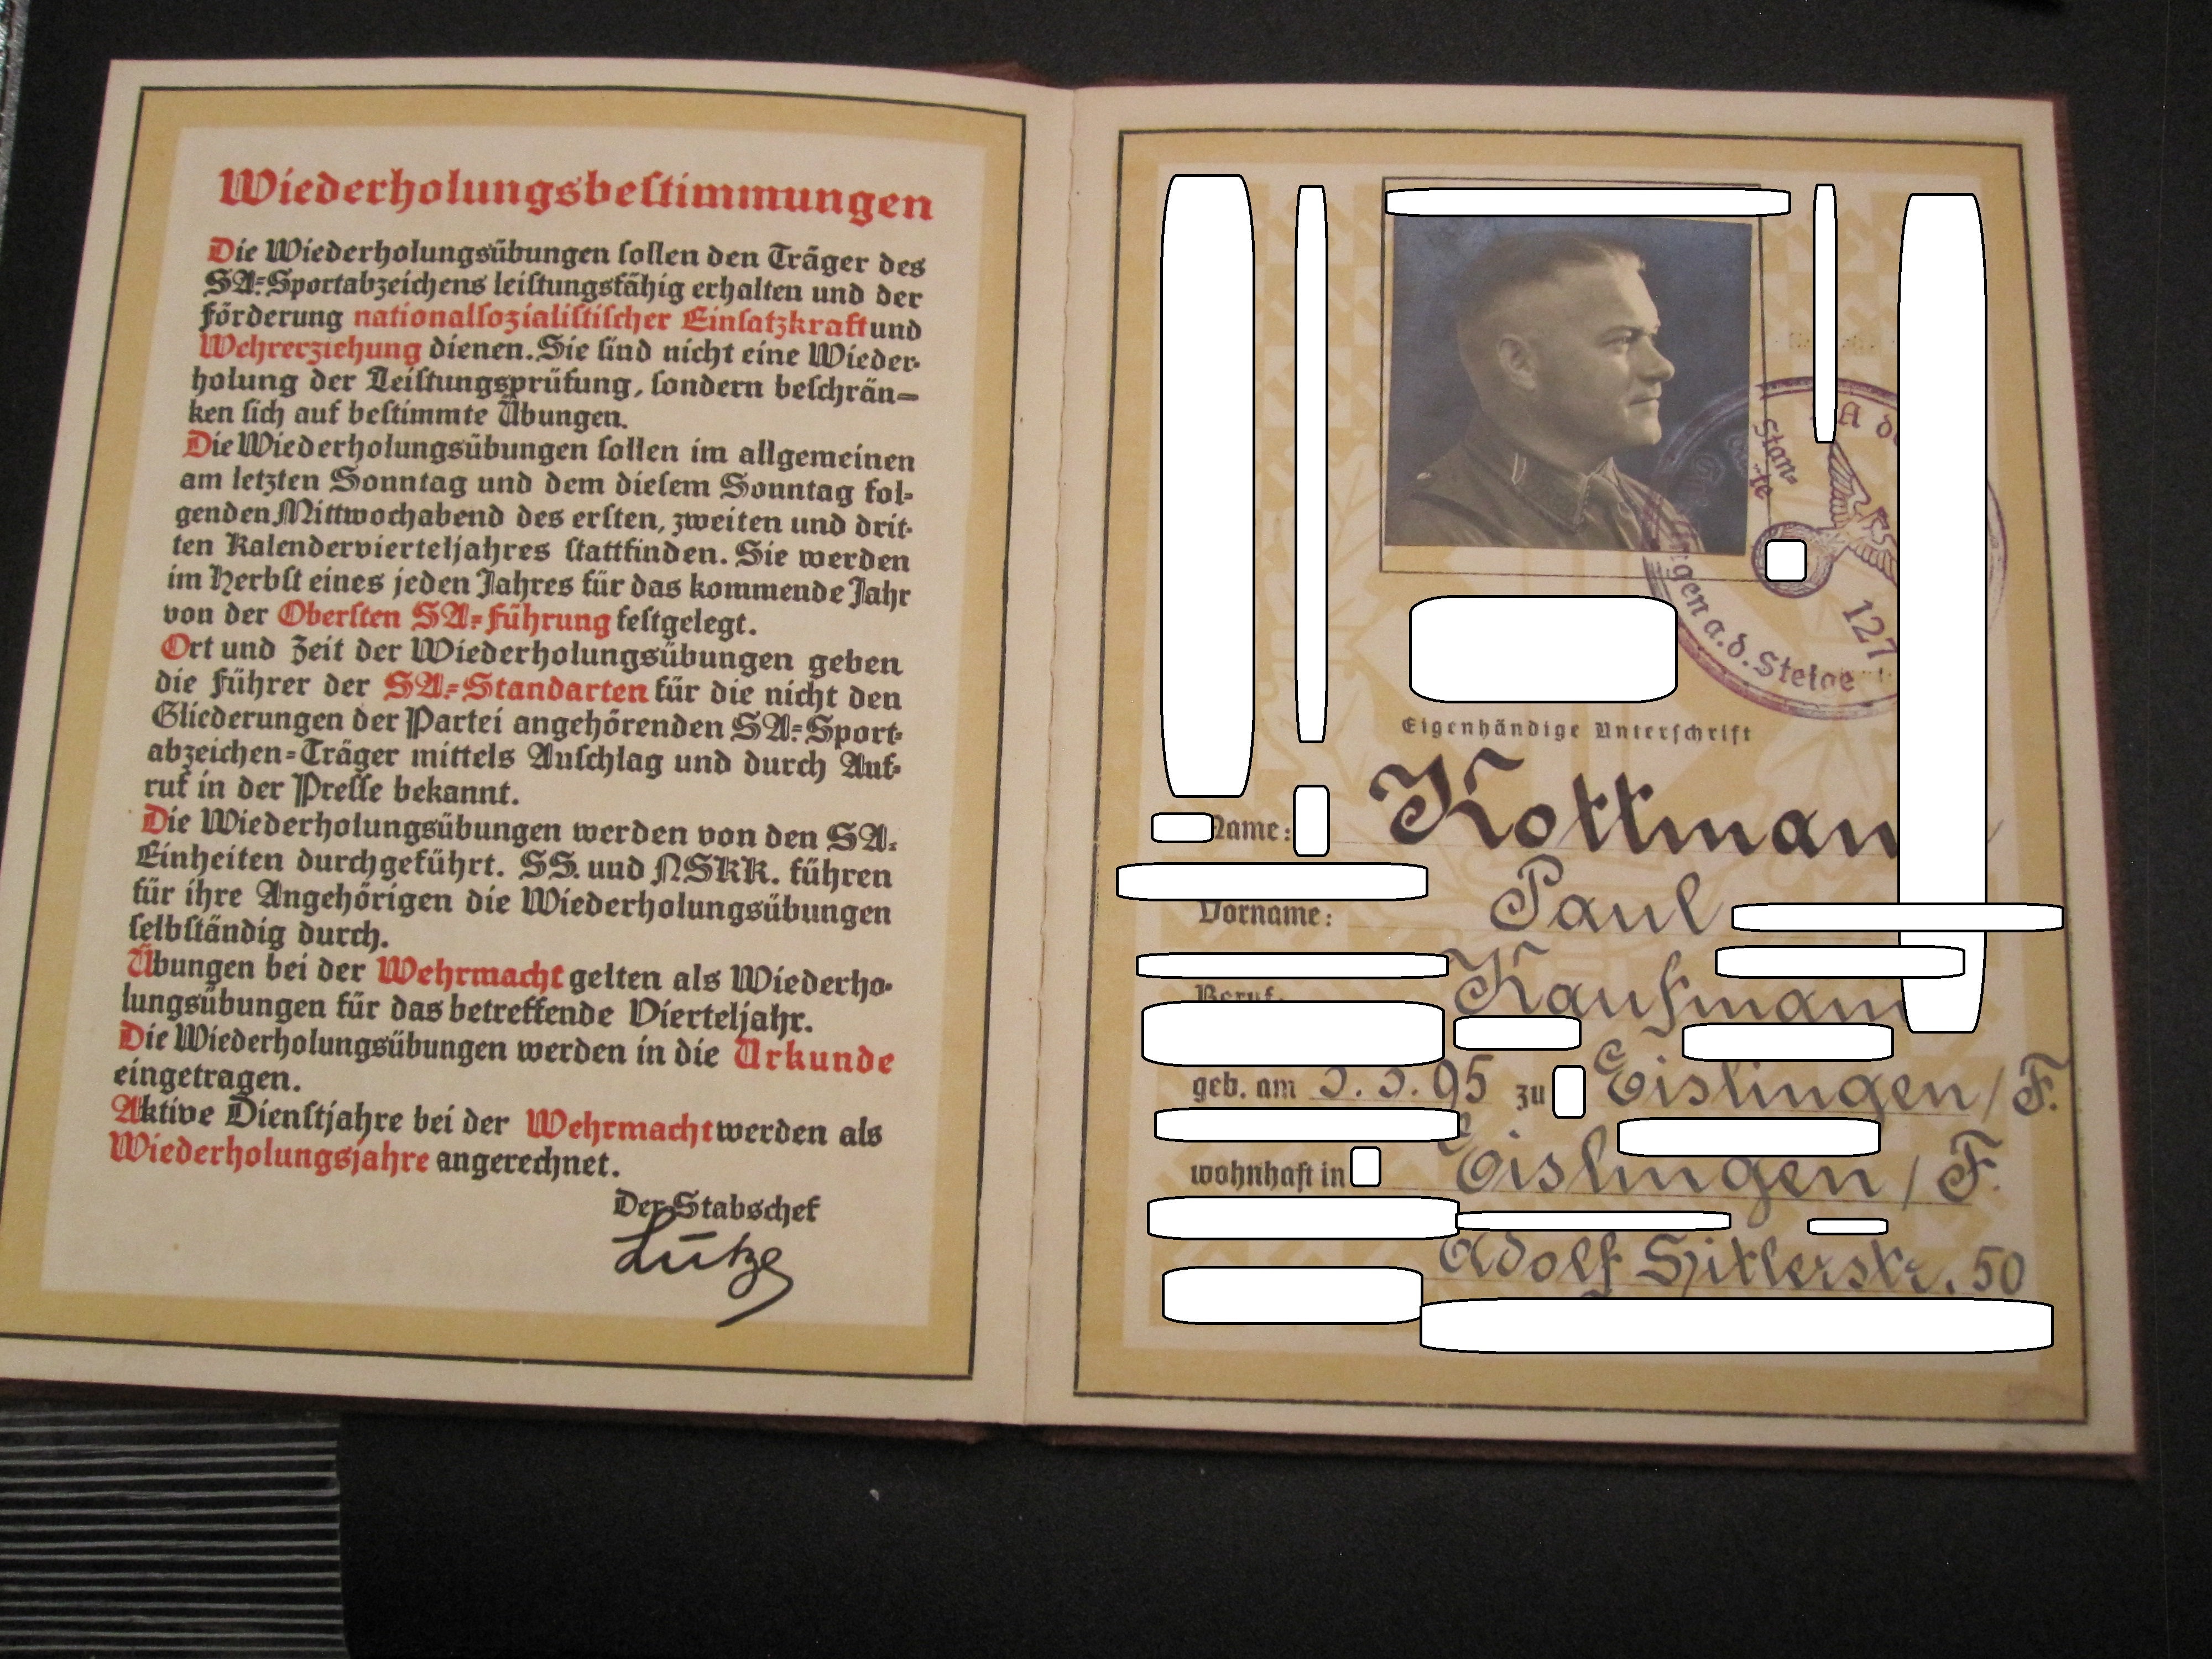 Wiederholungsbestimmungen
Die Wiederholungsübungen sollen den Träger des
SA=Sportabzeichens leistungsfähig erhalten und der
Förderung nationalsozialistischer Einsatzkraft und
Wehrerziehung dienen. Sie sind nicht eine Wieder-
holung der Leistungsprüfung, sondern beschrän=
ken sich auf bestimmte Übungen.
Die Wiederholungsübungen sollen im allgemeinen
am letzten Sonntag und dem diesem Sonntag fol-
genden Mittwochabend des ersten, zweiten und drit-
ten Kalendervierteljahres stattfinden. Sie werden
im Herbst eines jeden Jahres für das kommende Jahr
von der Obersten SA=Führung festgelegt.
Ort und Zeit der Wiederholungsübungen geben
die Führer der SA=Standarten für die nicht den
Gliederungen der Partei angehörenden SA=Sport-
abzeichen=Träger mittels Anschlag und durch Auf-
ruf in der Presse bekannt.
Die Wiederholungsübungen werden von den SA-
Einheiten durchgeführt. SS. und NSKK. führen
für ihre Angehörigen die Wiederholungsübungen
selbständig durch.
Übungen bei der Wehrmacht gelten als Wiederho-
lungsübungen für das betreffende Vierteljahr.
Die Wiederholungsübungen werden in die Urkunde
eingetragen.
Aktive Dienstjahre bei der Wehrmacht werden als
Wiederholungsjahre angerechnet.
Der Stabschef
Lutze
Stan-
127
a.d. Steige
Eigenhändige Unterschrift
Name: Kottman
Vorname: Paul
Kaufmann
geb. am 95 zu Eislingen/F.
wohnhaft in Eislingen/F.
Adolf Hitlerstr. 50